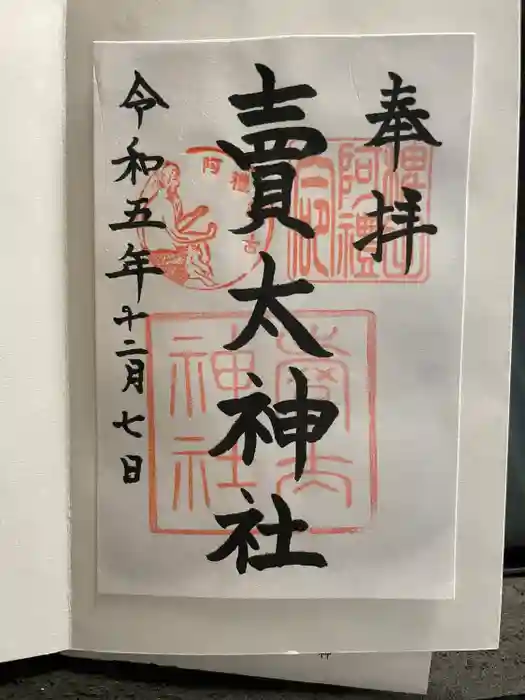 奉拝
賣太神社
令和五年十二月七日
阿禮
神社
神